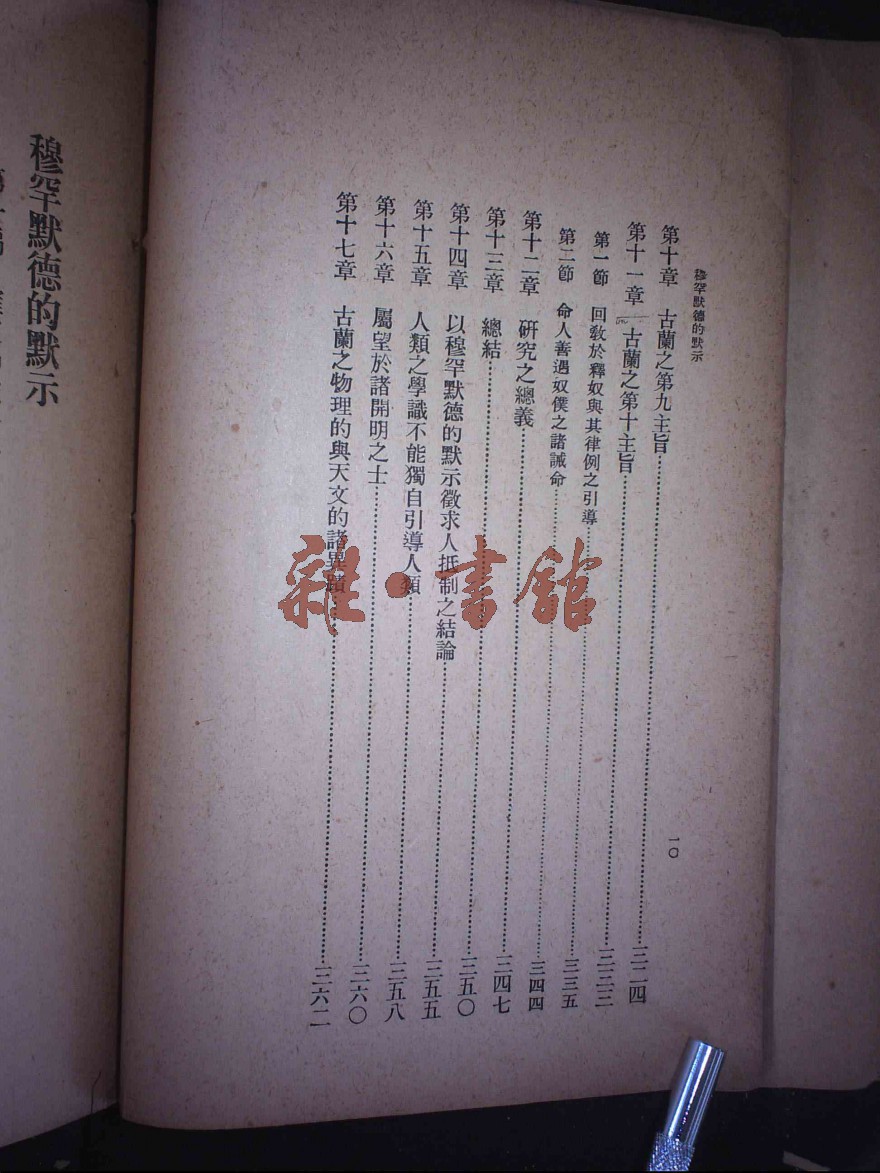 穆罕默德的默示
一〇
第十章 古蘭之第九主旨……三二四
第十一章 古蘭之第十主旨……三三三
第一節 回教於釋奴與其律例之引導……三三五
第二節 命人善遇奴僕之諸誡命……三四四
第十二章 研究之總義……三四七
第十三章 總結……三五〇
第十四章 以穆罕默德的默示徵求人抵制之結論……三五五
第十五章 人類之學識不能獨自引導人類……三五八
第十六章 屬望於諸開明之士……三六〇
第十七章 古蘭之物理的與天文的諸異蹟……三六二
穆罕默德的默示
雜·書館